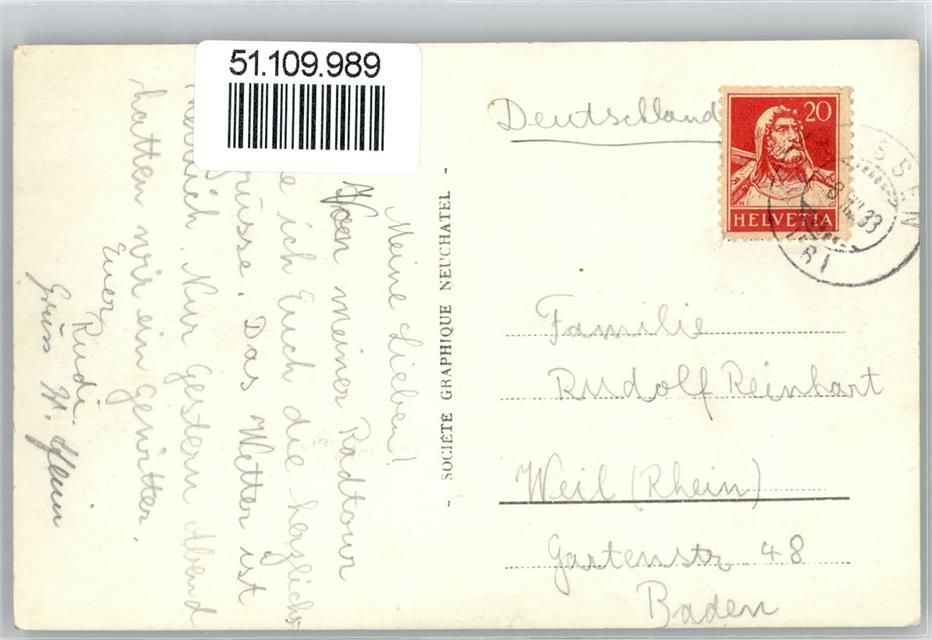 51.109.989
Meine Lieben!
Von meiner Radtour
ich Euch die herzlichs
Das Wetter ist
Nur gestern Abend
hatten wir ein Gewitter.
Euer
Rudi.
Gruss
- SOCIÉTÉ GRAPHIQUE NEUCHATEL -
Deutschland
20
HELVETIA
33
Familie
Rudolf Reinhart
Weil (Rhein)
Gartenstr. 48
Baden